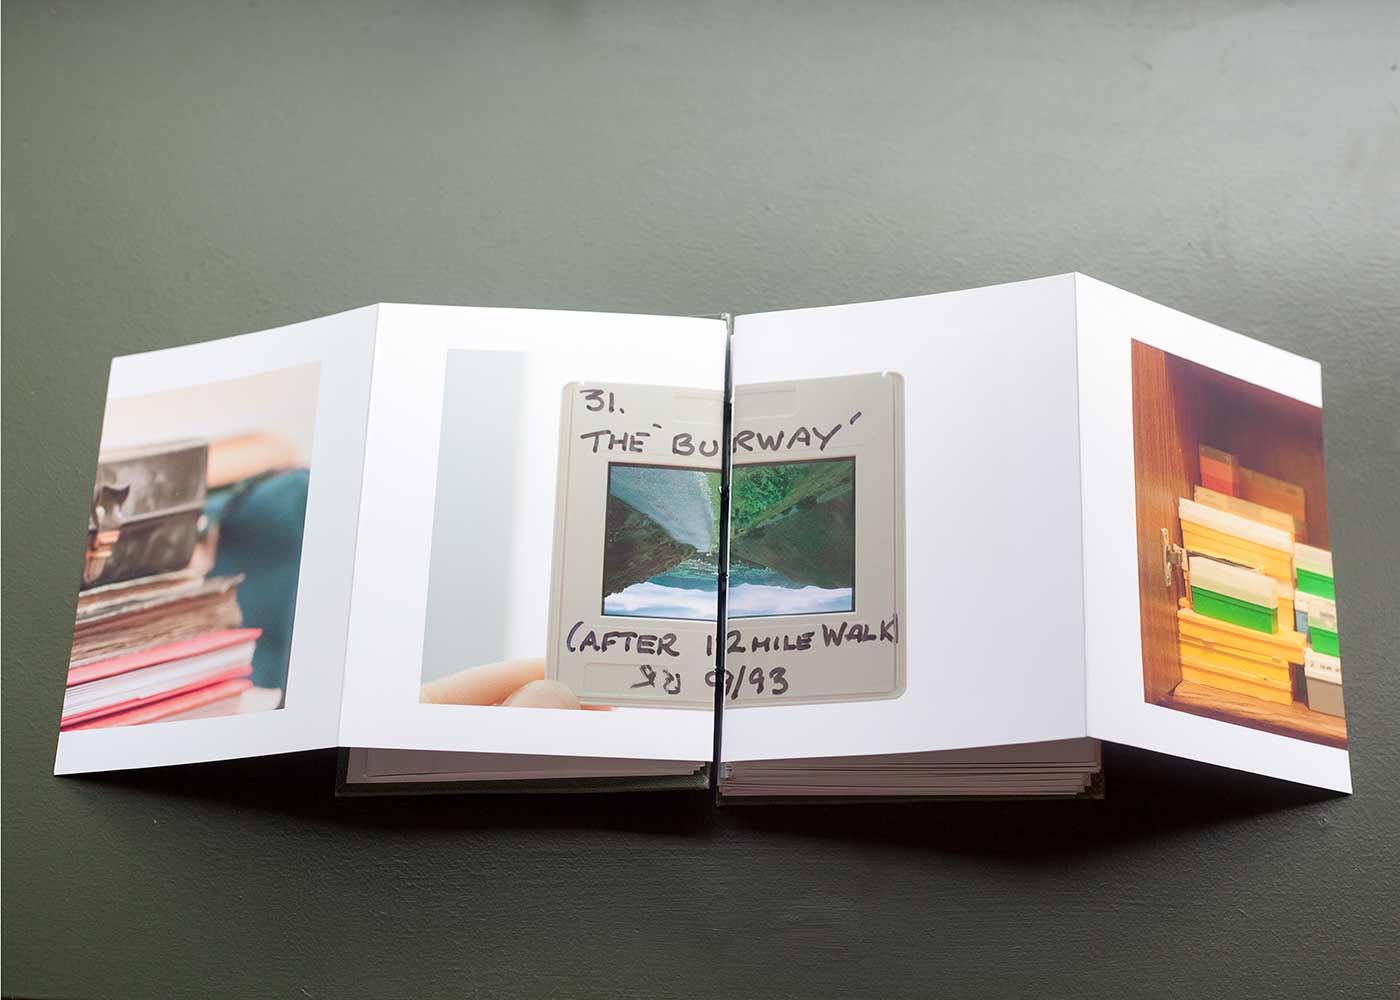 31.
THE 'BURWAY'
(AFTER 12 MILE WALK)
9/93